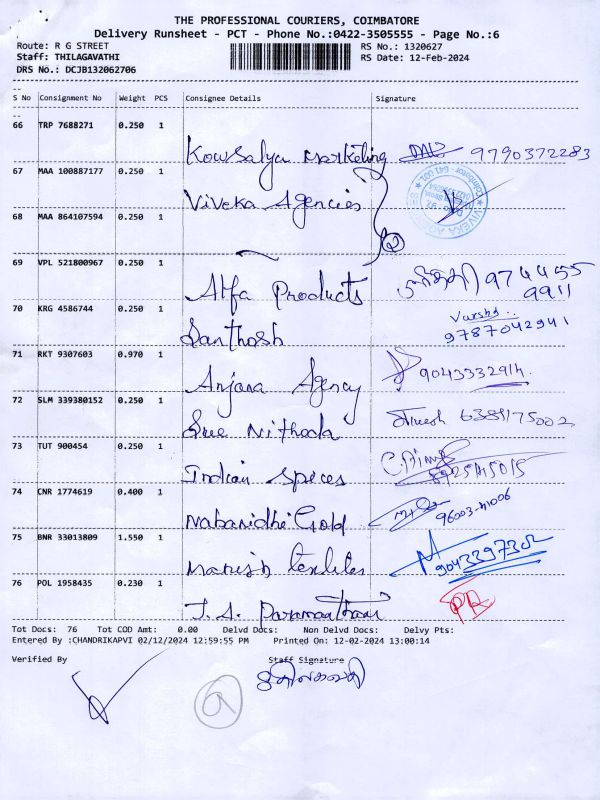 THE PROFESSIONAL COURIERS, COIMBATORE
Delivery Runsheet - PCT - Phone No.:0422-3505555 - Page No.:6
Route: R G STREET RS No.: 1320627
Staff: THILAGAVATHI RS Date: 12-Feb-2024
DRS No.: DCJB132062706
S No Consignment No Weight PCS Consignee Details Signature
66 TRP 7688271 0.250 1
Kowsalya Marketing 9790372283
67 MAA 100887177 0.250 1
Viveka Agencies
68 MAA 864107594 0.250 1
69 VPL 521800967 0.250 1
Alfa Products 974455
9911
70 KRG 4586744 0.250 1
Varsha
Santhosh 9787042941
71 RKT 9307603 0.970 1
Anjana Agency 9043332914
72 SLM 339380152 0.250 1
Sree Nithada Dinesh 6381175002
73 TUT 900454 0.250 1
Indian Spices
74 CNR 1774619 0.400 1
Nabanidhi Gold 96003-41006
75 BNR 33013809 1.550 1
Manish textiles 9043397302
76 POL 1958435 0.230 1
Tot Docs: 76 Tot COD Amt: 0.00 Delvd Docs: Non Delvd Docs: Delvy Pts:
Entered By :CHANDRIKAPVI 02/12/2024 12:59:55 PM Printed On: 12-02-2024 13:00:14
Verified By Staff Signature